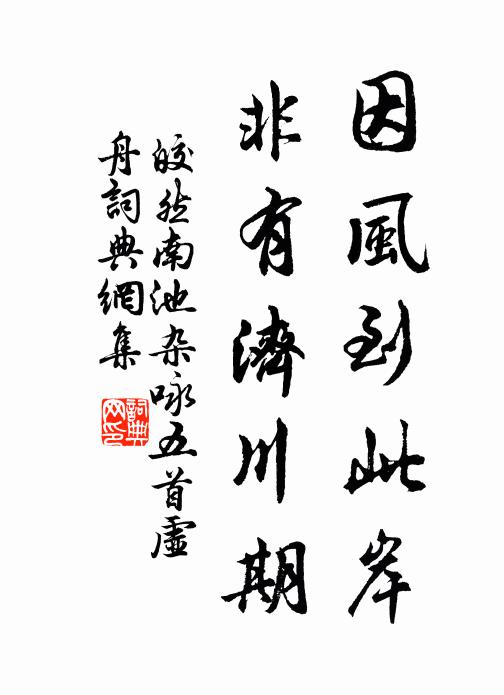 因風到此岸
非有濟川期
皎然南池杂咏五首虛
舟詞典網集
詞典
网印